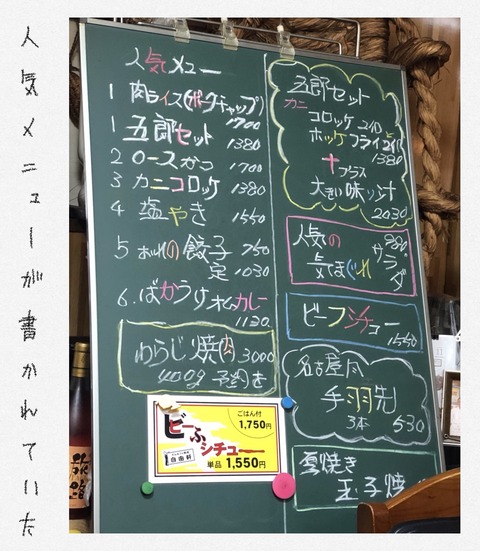 人気メニューが書かれていた
人気メニュー
1 肉ライス(ポークチャップ)
1700
1 五郎セット
1380
2 ロースかつ 1700
3 カニコロッケ 1380
4 塩やき 1550
5 おれの餃子 750
定 1030
6. ばかうけオムカレー
1130
わらじ焼肉 3000
400g 予約可
五郎セット
カニ
コロッケ 2コ
ホッケフライ 2ケ
1380
+プラス
大きい味ソ汁
2030
人気の
気まぐれ
サラダ
980
ビーフシチュー
1550
名古屋風
手羽先
3本 530
玉子焼
ごはん付
1,750円
ビーふ
シチュー
自由軒
単品 1,550円